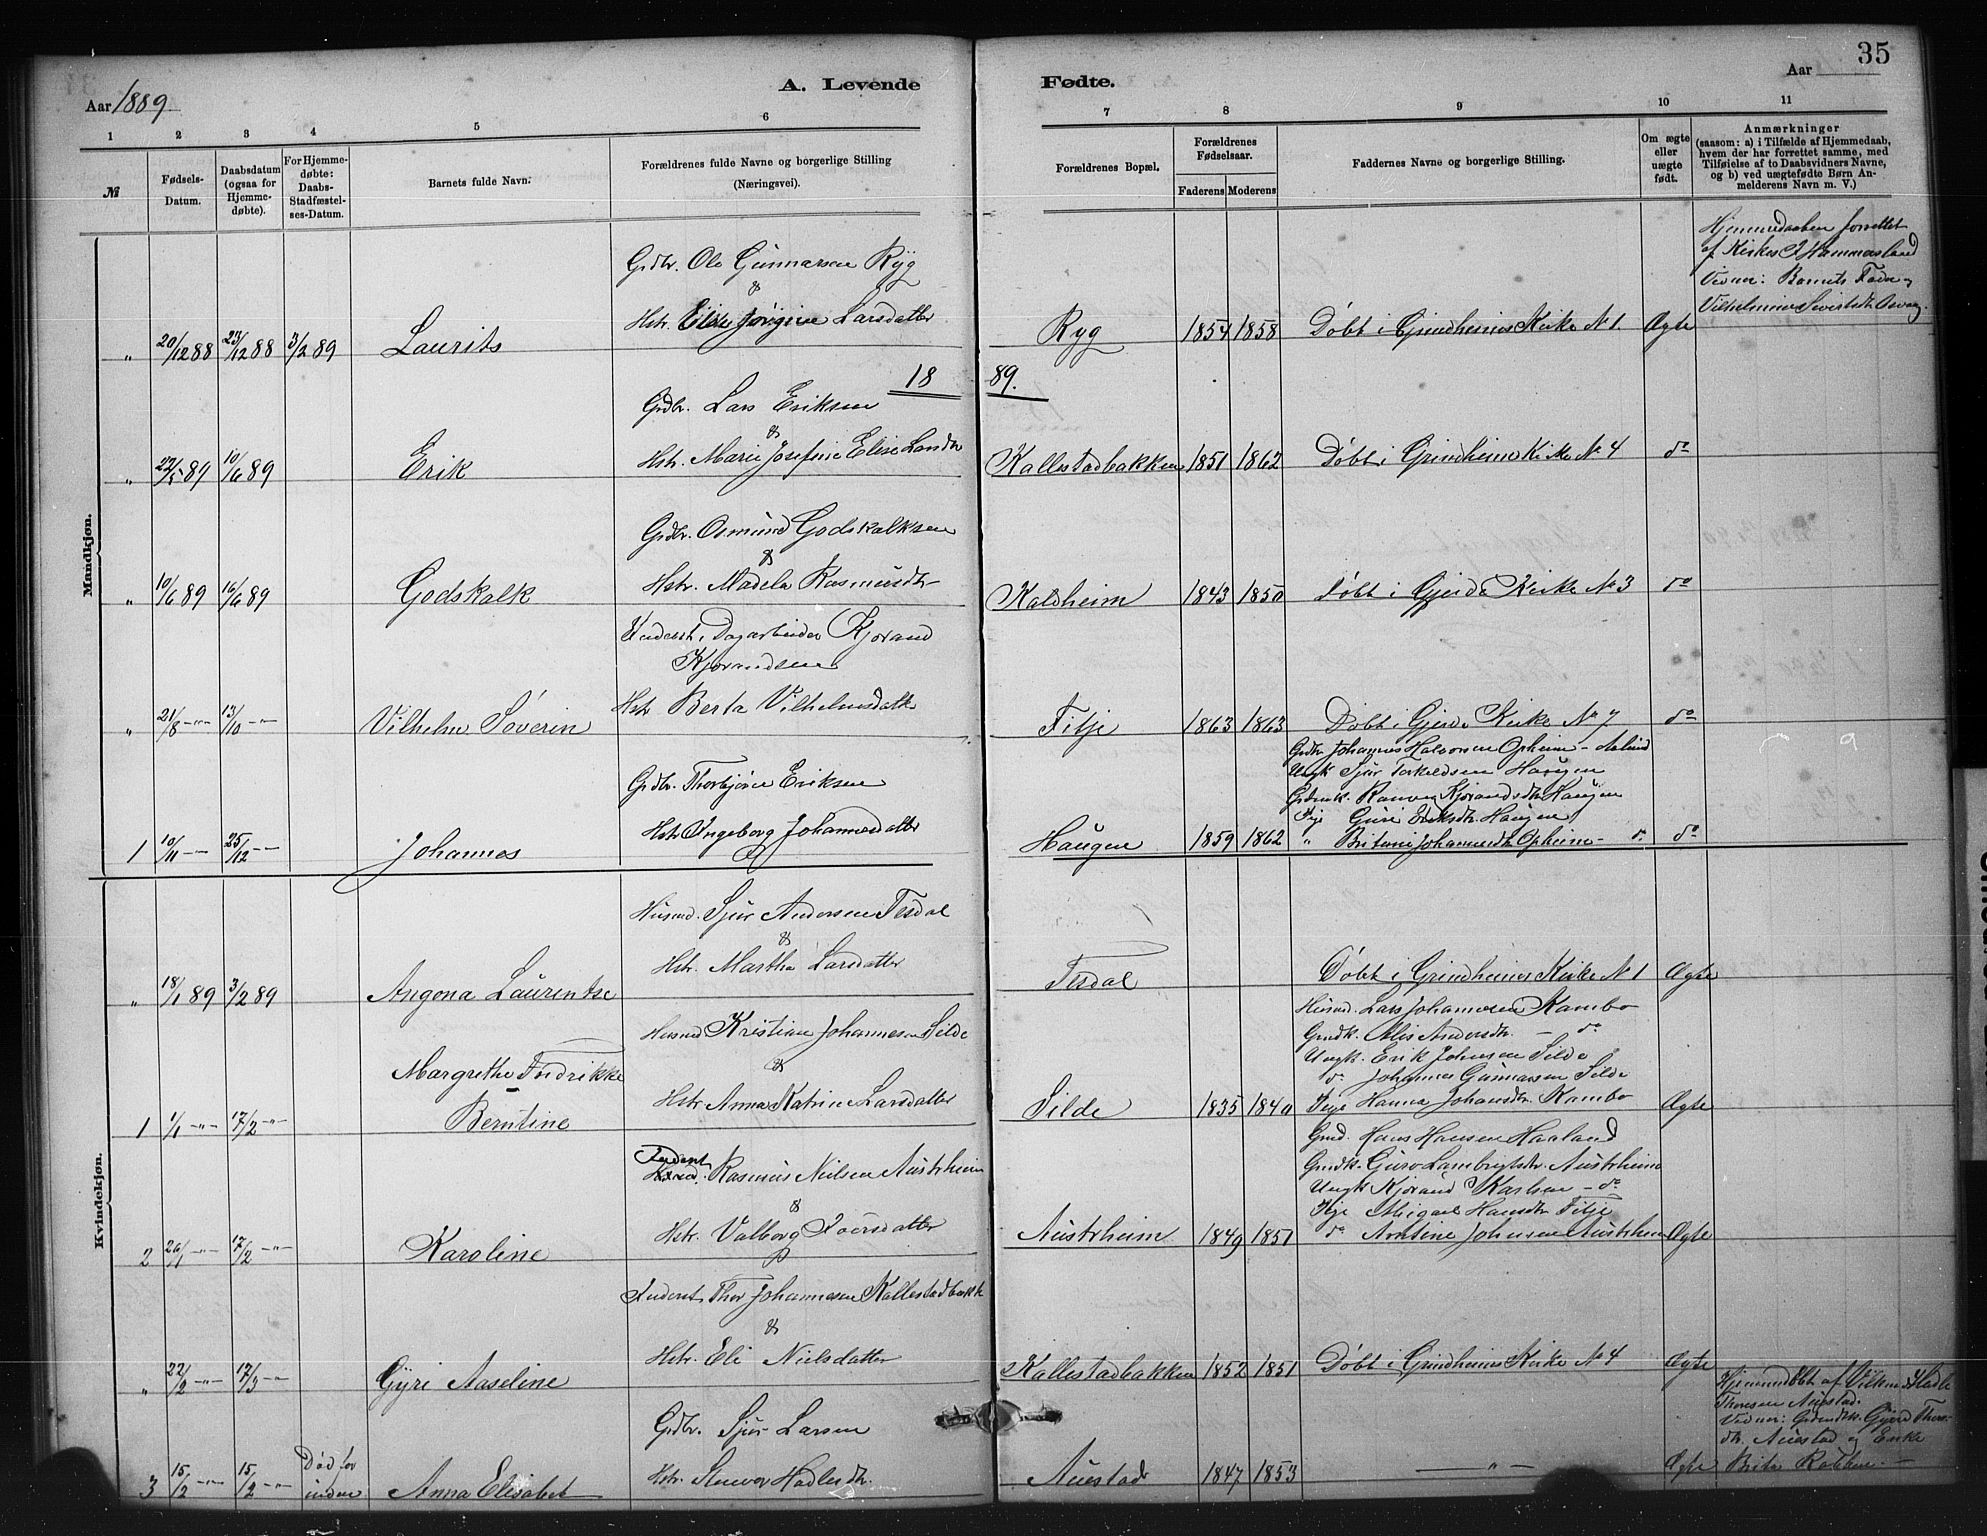 35
Aar 1889
A. Levende
Fødte.
Aar
1 2 3 4 5 6 7 8 9 10 11
№
Fødsels-Datum.
Daabsdatum (ogsaa for Hjemmedøbte).
For Hjemmedøbte: Daabs-Stadfæstelses-Datum.
Barnets fulde Navn.
Forældrenes fulde Navne og borgerlige Stilling (Næringsvei).
Forældrenes Bopæl.
Forældrenes Fødselsaar.
Faderens Moderens
Faddernes Navne og borgerlige Stilling.
Om ægte eller uægte født.
Anmærkninger (saasom: a) i Tilfælde af Hjemmedaab, hvem der har forrettet samme, med Tilføielse af to Daabsvidners Navne, og b) ved uægtefødte Børn Anmelderens Navn m. V.)
Mandkjøn.
Hjemmedaaben forrettet
af Kirkes. J Hammersland
Vidner: Barnets Fader og
Grdbr. Ole Gunnarsen Ryg
&
Hstr. Larsdatter
„ 20/12 88 23/12 88 3/2 89 Laurits Ryg 1854 1858 Døbt i Grindheims Kirke № 1 Ægte
1889.
Grdbr. Lars Eriksen
&
Hstr. Marie Josefine Elise Landr
„ 22/5 89 10/6 89 Erik Kallestadbakken 1851 1862 Døbt i Grindheims Kirke № 4 do
Grdbr. Osmund Godskalksen
&
Hstr. Madela Rasmusdtr
„ 10/6 89 16/6 89 Godskalk Kaldheim 1843 1850 Døbt i Gjerde Kirke № 3 do
Inderst, Dagarbeider Kjørand
Kjørandsen
Hstr Berta Vilhelmsdatter
„ 21/8 -„- 13/10 -„- Vilhelm Søverin Fitje 1863 1863 Døbt i Gjerde Kirke № 7 do
Grdbr. Thorbjørn Eriksen
Hstr Ingeborg Johannesdatter
&
1 10/11 -„- 25/12 -„- Johannes Haugen 1859 1862 do
Grdbr Johannes Halvorsen Opheim - Aalund
Ungk Sjur Torkeldsen Haugen
Grdmk. Ranvei Kjørandsdtr Haugen
Pige Guri Eriksdtr. Haugen
„ Johannesdtr Opheim - do
Kvindekjøn.
Husmd. Sjur Andersen Tesdal
&
Hstr. Martha Larsdatter
„ 18/1 89 3/2 89 Angona Laurentse Tesdal Døbt i Grindheims Kirke № 1 Ægte
Husmd Kristian Johannesen Silde
&
Hstr Anna Katrine Larsdatter
1 1/1 -„- 17/2 -„- Margrethe Fredrikke Berntine Silde 1835 1840 Ægte
Husmd. Lars Johannesen Kambo
Gmdk. Alis Andersdtr. - do
Ungk. Erik Johnsen Silde
do Johannes Gunnarsen Silde
Pige Hanna Johansdtr. Kambo
Inderst Rasmus Nilsen Austrheim
&
Hstr. Valborg Iversdatter
2 26/1 -„- 17/2 -„- Karoline Austrheim 1849 1851 Ægte
Gmd. Hans Hansen Haaland
Gmdk. Guro Lambrigtsdtr. Austrheim
Ungk Kjørand Karlsen - do
Pige Abigael Hansdtr Fitje
do Arntine Johnsen Austrheim
Inderst Thor Johannesen Kallestadbakk
&
Hstr. Eli Nielsdatter
„ 22/2 -„- 17/3 -„- Gyri Aaseline Kallestadbakken 1852 1851 Døbt i Grindheims Kirke № 4 Ægte
Grdbr. Sjur Larsen
Hstr. Hadlesdtr.
3 15/2 -„- 15/2 -„- Død for inden Anna Elisabet Auestad 1847 1853 - „ - Ægte
Hjemmedøbt af Hadle
Thoresen Auestad.
Vidner: Grdmdk. Gjøre Thores-
dtr. Auestad og Enke
Brita Rabben. -